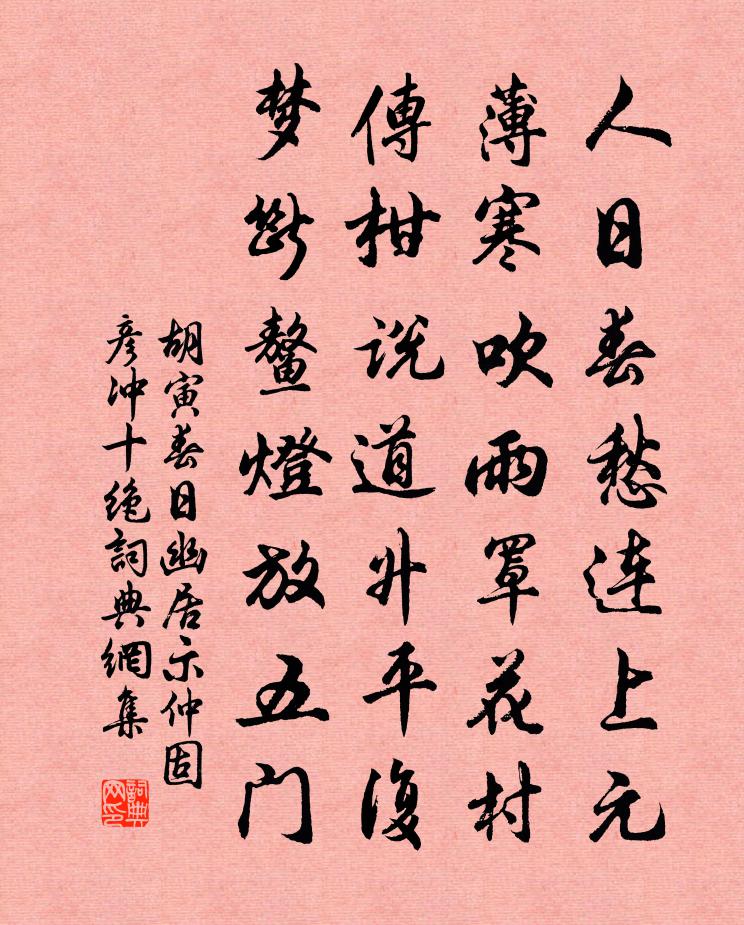 人日春愁连上元
薄寒吹雨罩花村
傳柑说道升平復
梦斷鳌燈放五门
胡寅春日幽居示仲固
彦冲十绝詞典網集
詞典网印